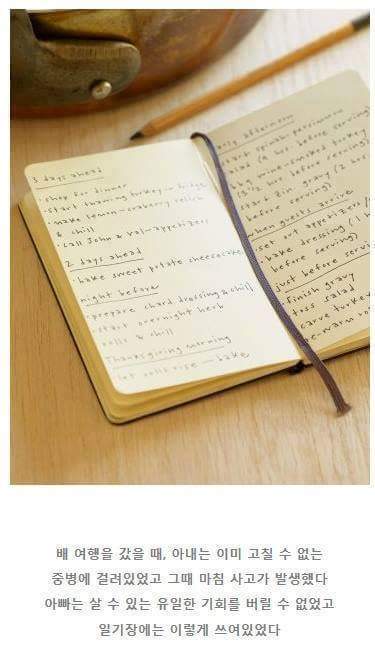 3 days ahead
· shop for dinner
· start thawing turkey in fridge
· make lemon-cranberry relish
& chill
· call John & Val-appetizers
2 days ahead
· bake sweet potato cheesecake
night before
· prepare chard dressing & chill
· start overnight herb
rolls & chill
Thanksgiving morning
let rolls rise — bake
early afternoon
start spinach-persimmon
salad (4 hrs before serving)
bbq wine-smoked turkey
(3½ hrs before serving)
start zin gravy (2 hrs
before serving)
when guests arrive
set out appetizers
· bake dressing (1 h
before serving)
just before servi
· finish gravy
toss salad
carve turkey
re-warm ro
배 여행을 갔을 때, 아내는 이미 고칠 수 없는
중병에 걸려있었고 그때 마침 사고가 발생했다
아빠는 살 수 있는 유일한 기회를 버릴 수 없었고
일기장에는 이렇게 쓰여있었다